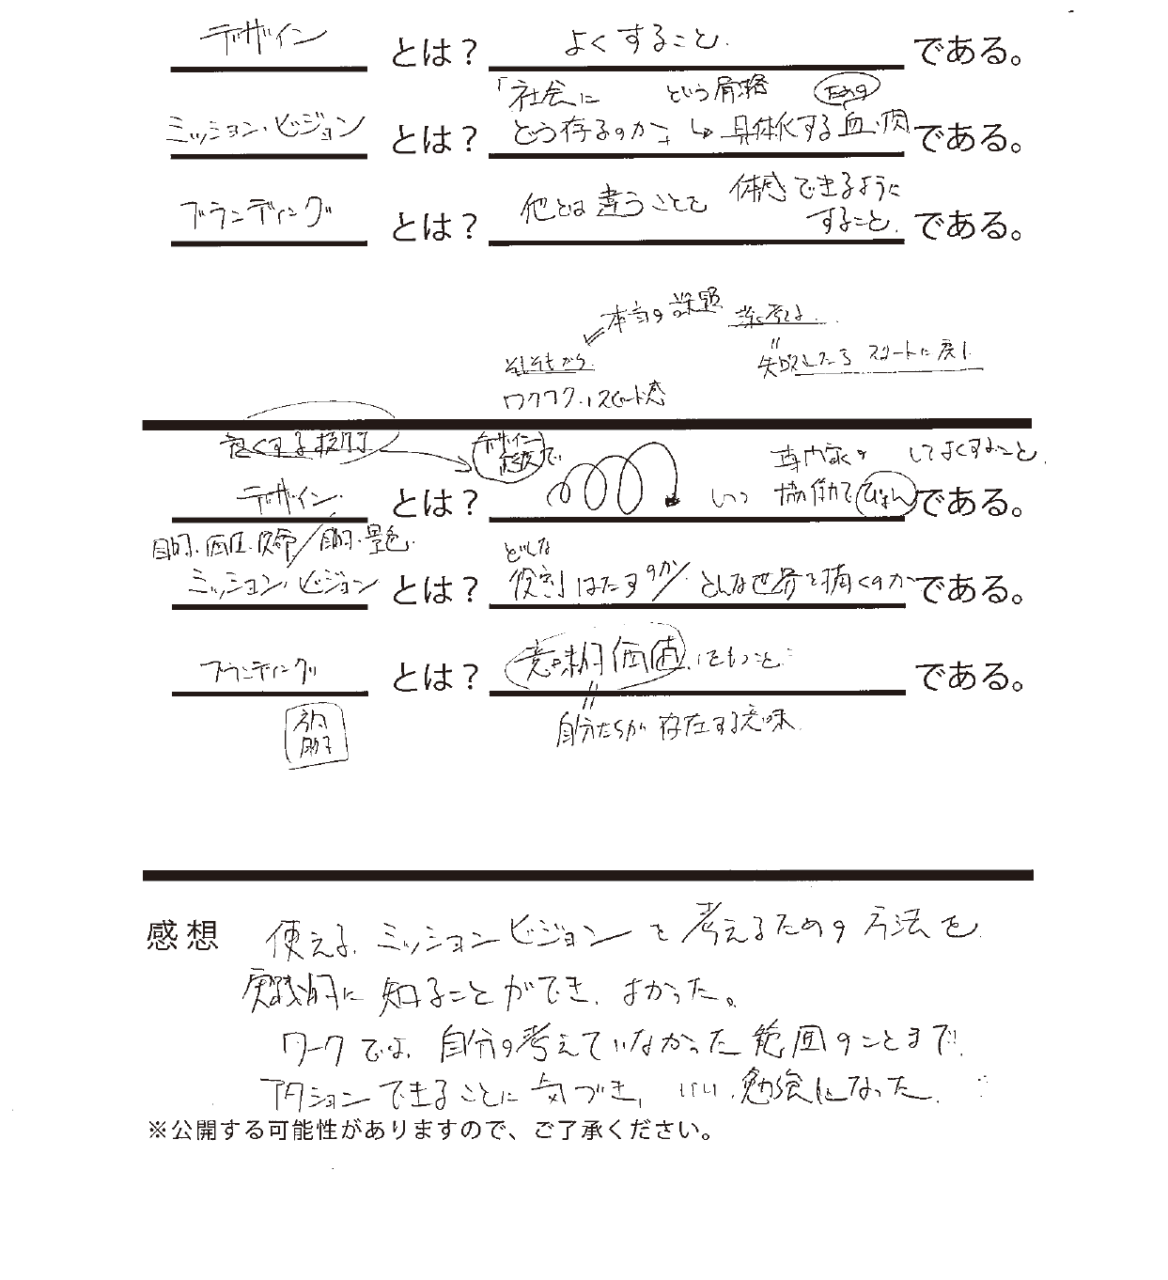 デザイン とは？ よくすること. である。
「社会に という骨格 ための
ミッション・ビジョン とは？ どう存るのか」 ↳ 具体化する血・肉 である。
ブランディング とは？ 他とは違うことを 体感できるように
すること. である。
本当の課題
そもそもから. 失敗したら スタートに戻り
ワクワク・スピード感
良くする技術
デザイン とは？ デザイン態度で いつ 専門家の 協働で してよくすること. である。
目的・価値・使命／目的・景色.
ミッション・ビジョン とは？ どんな役割はたすのか／どんな世界を描くのか である。
ブランディング とは？ 意味的価値をもつこと. である。
自分たちが存在する意味.
感想 使える ミッションビジョンを考えるための方法を
実践的に知ることができ、よかった。
ワークでは、自分の考えていなかった範囲のことまで
アクションできることに気づき、いい勉強になった.
※公開する可能性がありますので、ご了承ください。